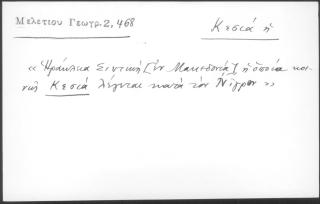 Μελετίου Γεωγρ. 2, 468
Κεσιά ἡ
« Ἡράκλεια Σιντική [ἐν Μακεδονίᾳ] ἡ ὁποία κοι-
νῶς Κεσιά λέγεται κατά τόν Νίγρον »